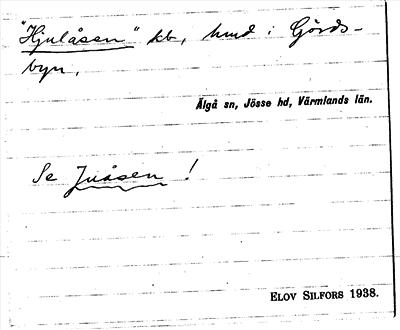 "Hjulåsen" kb, hmd i Gärds-
byn.
Älgå sn, Jösse hd, Värmlands län.
Se Juåsen !
ELOV SILFORS 1938.